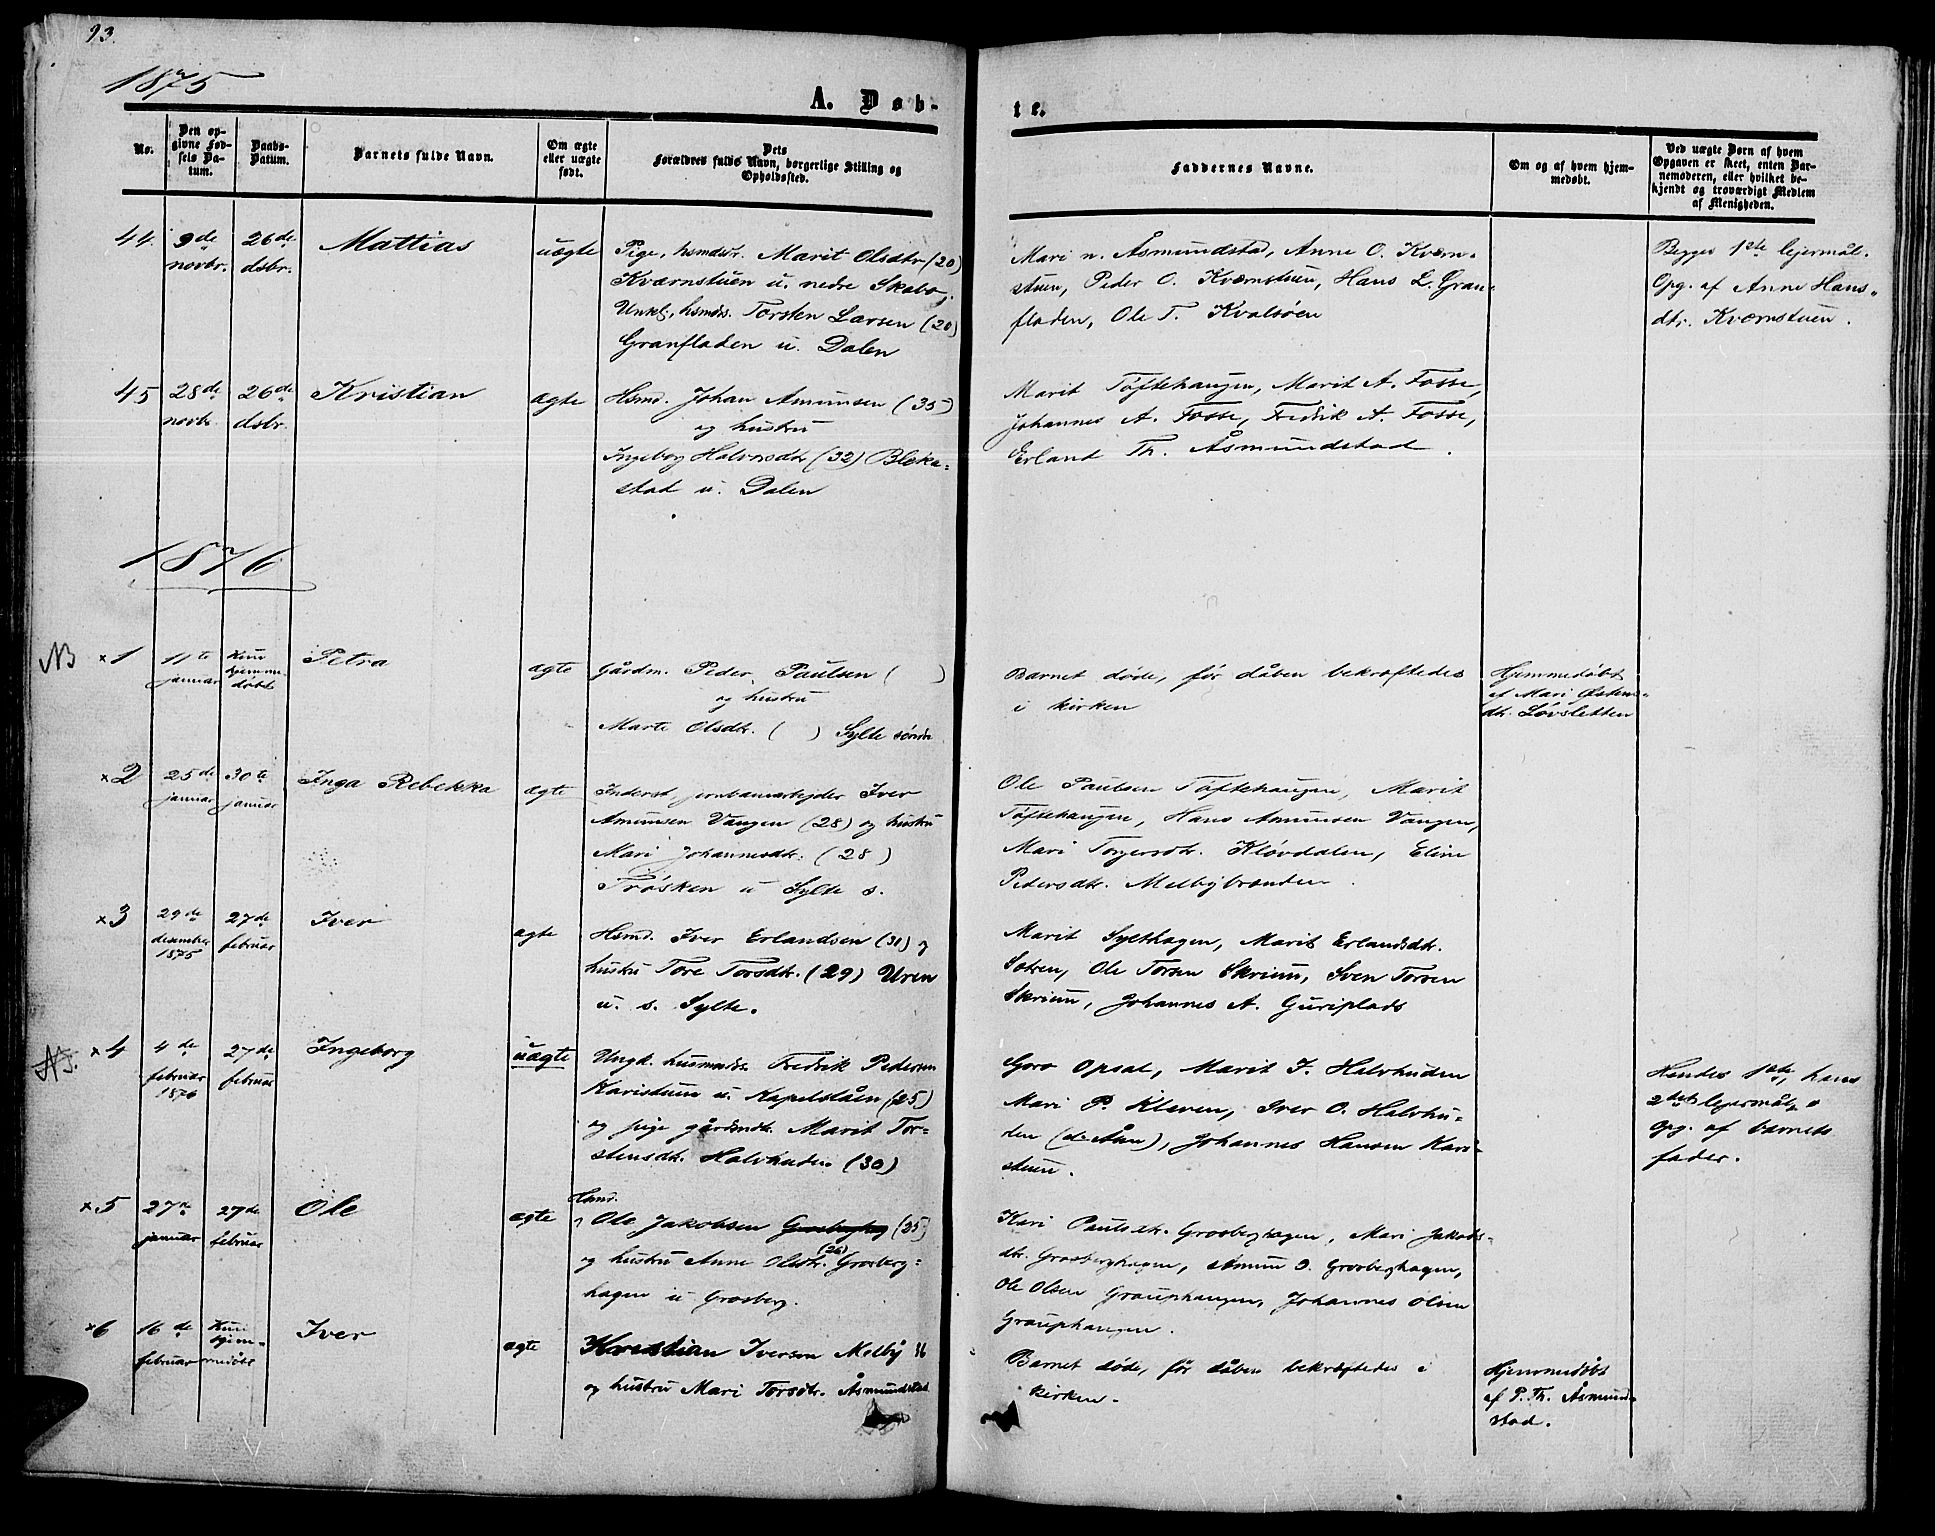 93.
1875
A. Døb-
te.
No.
Den op-
givne Fød-
sels Da-
tum.
Daabs-
Datum.
Barnets fulde Navn.
Om ægte
eller uægte
født.
Dets
Forældres fulde Navn, borgerlige Stilling og
Opholdssted.
Faddernes Navne.
Om og af hvem hjem-
medøbt.
Ved uægte Børn af hvem
Opgaven er skeet, enten Bar-
nemoderen, eller hvilket be-
kjendt og troværdigt Medlem
af Menigheden.
44. 9de novbr. 26de dsbr. Mattias uægte
Pige, hsmdsdtr. Marit Olsdtr (20)
Kværnstuen u. nedre Skabo,
Unkl., hsmds. Torsten Larsen (20)
Granfladen u. Dalen
Mari n. Åsmundstad, Anne O. Kværn-
stuen, Peder O. Kværnstuen, Hans L. Gran-
fladen, Ole T. Kvalsøen
Begges 1ste lejermål.
Opg. af Anne Hans-
dtr. Kværnstuen.
45 28de novbr. 26de dsbr. Kristian ægte
Hsmd. Johan Amunsen (35)
og hustru
Ingeborg Halvorsdtr (32) Bleka-
stad u. Dalen
Marit Tøftehaugen, Marit A. Fosse,
Johannes A. Fosse, Fredrik A. Fosse,
Erland Th. Åsmundstad.
1876
NB ×1 11te januar Kun hjemme- døbt Petra ægte
Gårdm. Peder Paulsen ( )
og hustru
Marte Olsdtr. ( ) Sylte søndre
Barnet døde, før dåben bekræftedes
i kirken
Hjemmedøbt
af Mari Østens-
dtr. Løvsletten
×2 25de januar 30te januar Inga Rebekka ægte
Inderst, jernbanearbejder Iver
Amunsen Vangen (28) og hustru
Mari Johannesdtr. (28)
Trøsken u Sylte s.
Ole Paulsen Tøftehaugen, Marit
Tøftehaugen, Hans Amunsen Vangen,
Mari Torgersdtr. Kløvdalen, Eline
Pedersdtr. Melbybranden.
×3 29de desember 1875 27de februar Iver ægte
Hsmd. Iver Erlandsen (31) og
hustru Tore Torsdtr. (29) Uren
u. s. Sylte.
Marit Sylthagen, Marit Erlandsdtr.
Sotren, Ole Torsen Skrium, Sven Torsen
Skrium, Johannes A. Guriplads
NB. ×4 4de februar 1876 27de februar Ingeborg uægte
Ungk. husmands. Fredrik Pedersen
Karistuen u. Kapelslåen (25)
og pige gårdmdtr. Marit Tor-
stensdtr. Halvhuden (30)
Goro Opsal, Marit I. Halvhuden
Mari P. Kleven, Iver O. Halvhu-
den (d. Åen), Johannes Hansen Kari-
stuen.
Hendes 1ste, hans
2det lejermål,
Opg. af barnets
fader.
×5 27de januar 27de februar Ole ægte
Hsmd.
Ole Jakobsen (25)
og hustru Anne Olsdtr. (26) Grosberg-
hagen u Grosberg.
Kari Paulsdtr. Grosberghagen, Mari Jakobs-
dtr. Grosberghagen, Amun O. Grosberghagen,
Ole Olsen Grauphaugen, Johannes Olsen
Grauphaugen.
×6 16de februar Kun hjem- medøbt Iver ægte
Kristian Iversen Melby 36
og hustru Mari Torsdtr. Åsmundstad
Barnet døde, før dåben bekræftedes i
kirken.
Hjemmedøbt
af P. Th. Åsmund-
stad.